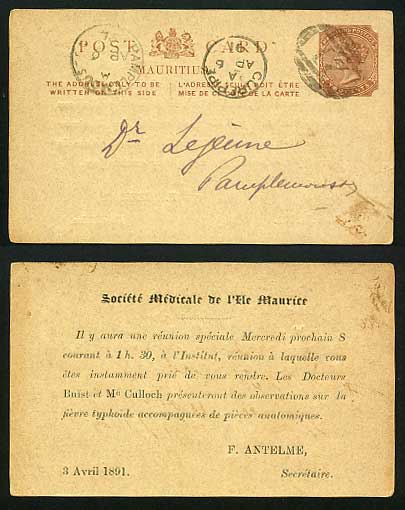 POST CARD
MAURITIUS
THE ADDRESS ONLY TO BE
WRITTEN ON THIS SIDE
L'ADRESSE SEULE DOIT ÊTRE
MISE DE CÔTÉ DE LA CARTE
CUREPIPE
A
AP 6
91
Dr Lejeune
Pamplemousses
Société Médicale de l'Ile Maurice
Il y aura une réunion spéciale Mercredi prochain 8
courant à 1 h. 30, à l'Institut, réunion à laquelle vous
êtes instamment prié de vous rendre. Les Docteurs
Buist et Mc Culloch présenteront des observations sur la
fièvre typhoïde accompagnées de pièces anatomiques.
F. ANTELME,
3 Avril 1891.
Secrétaire.